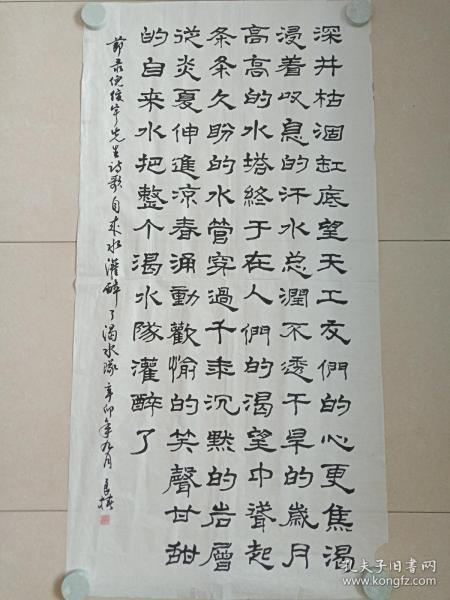 深井枯涸缸底望天工友們的心更焦渴
浸着叹息的汗水总潤不透干旱的歲月
高高的水塔終于在人們的渴望中聳起
条条久盼的水管穿過千年沉默的岩層
從炎夏伸進凉春涌動歡愉的笑聲甘甜
的自来水把整个渴水隊灌醉了
節录倪俊宇先生诗歌自来水灌醉了渴水隊 辛卯年九月
孔夫子旧书网